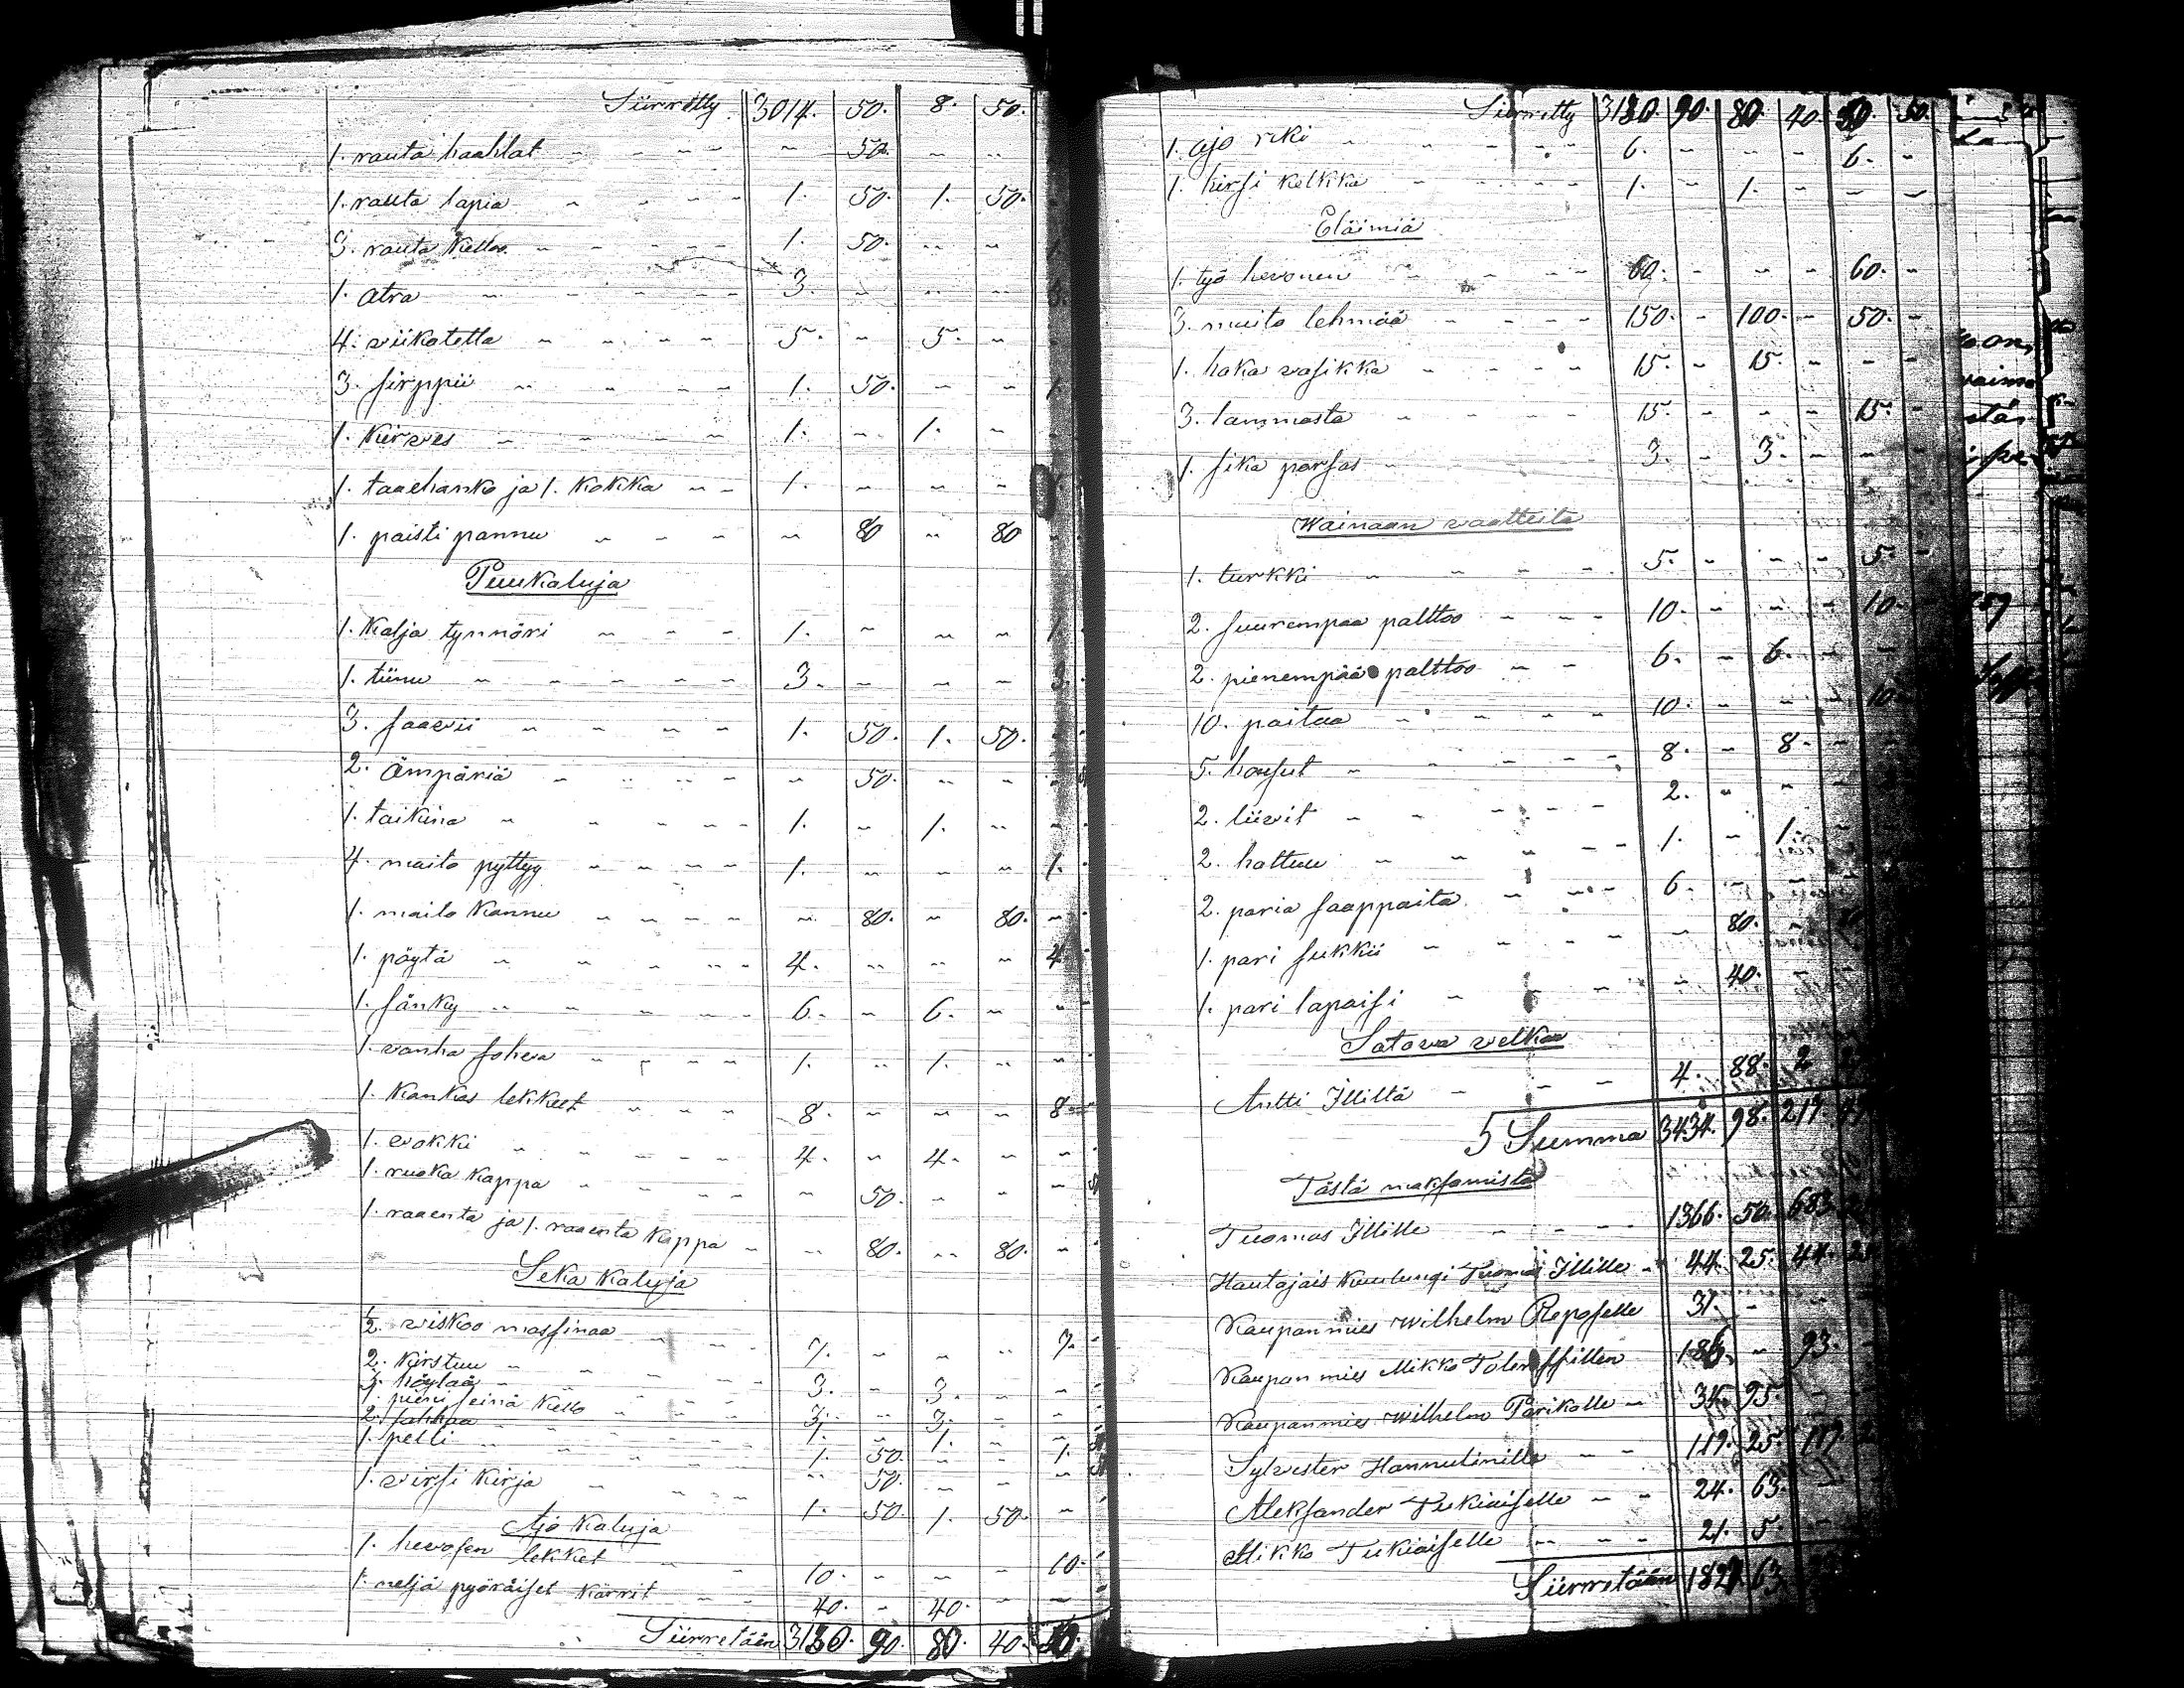 Siirretty 3014. 50. 8. 50.
1. rauta haahlat - 50. - -
1. rauta lapia 1. 50. 1. 50.
3. rauta Kelloo 1. 50. - -
1. atra 3. - - -
4. viikatetta 5. - 5. -
3. sirppii 1. 50. - - 1.
1. Kirves 1. - 1. -
1. taaehanko ja 1. Kokka 1. - - -
1. paisti pannu - 80 - 80
Puukaluja
1. Kalja tynnöri 1. - - - 1.
1. tiinu 3. - - - 3.
3. saavii 1. 50. 1. 50.
2. ämpäriä - 50. - -
1. taikina 1. - 1. -
4. maito pyttyy 1. - - - 1.
1. maito Kannu - 80. - 80. -
1. pöytä 4. - - - 4.
1. sänky 6. - 6. - -
1. vanha sohva 1. - 1. - -
1. Kankas lekkeet 8. - - - 8.
1. vokki 4. - 4. - -
1. ruoka Kappa - 50. - - -
1. raaenta ja 1. raaenta Kappa - 80. - 80. -
Seka Kaluja
1/2. viskoo massinaa 7. - - - 7.
2. Kirstuu 3. - 3. - -
3. höylää 3. - 3. - -
1. pieni seinä Kello
2. sahhaa
1. pelti - 50. - - -
1. virsi Kirja 1. 50. 1. 50. -
Ajo Kaluja
1. hevosen lekket 10. - - - 10.
1. neljä pyöräiset Kärrit 40. - 40. - -
Siirretään 3180. 90. 80. 40.
Siirretty 3180. 90. 80. 40. 50.
1. ajo reki 6. - - - 6. -
1. hirsi kelkka 1. - 1. - - -
Eläimiä
1. työ hevonen 60. - - - 60. -
3. maito lehmää 150. - 100. - 50. -
1. haka vasikka 15. - 15. - - -
3. lammasta 15. - - - 15. -
1. sika porsas 3. - 3. - - -
Wainaan vaatteita
1. turkki 5. - - - 5. -
2. suurempaa palttoo 10. - - - 10. -
2. pienempää palttoo 6. - 6. - -
10. paitaa 10. - - - 10.
5. housut 8. - 8. - -
2. liivit 2. - - -
2. hattuu 1. - 1. -
2. paria saappaita 6. - - -
1. pari sukkii - 80. -
1. pari lapaisi - 40. - -
Satava velkaa
Antti Illiltä 4. 88. 2
Summa 3434. 98. 217.
Tästä maksamista
Tuomas Illille 1366. 50. 683.
Hautajais Kuulungi Tuomas Illille 44. 25. 44.
Kaupanmies Wilhelm Reposelle 31. - -
Kaupanmies Mikko 186. - 93. -
Kaupanmies Wilhelm Parikalle 34. 95
Sylvester Hannutinille 119. 25.
Aleksander Tukiaiselle 24. 63.
Mikko Tukiaiselle 21. 5.
Siirretään 1827. 63.